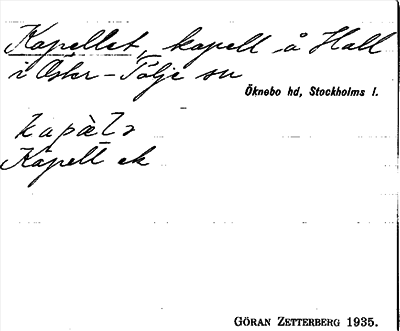 Kapellet, kapell å Hall
i Öster-Tälje sn
Öknebo hd, Stockholms l.
kapäls
Kapell ek
GÖRAN ZETTERBERG 1935.